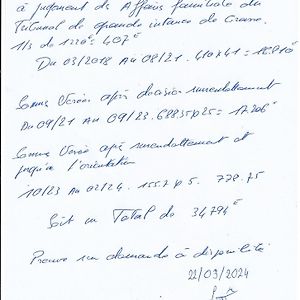 à jugement des Affaires familiales du
Tribunal de grande instance de
1/3 de 1220€ = 407€
Du 03/2018 Au 08/21. 410 x 41 = 16810€
Somme Versée après décision surendettement
Du 09/21 Au 09/23. 688.35 x 25 = 17.206€
Somme Versée après surendettement et
jusqu'à l'orientation
10/23 Au 02/24. 155.7 x 5. 778.75
Soit un Total de 34794€
Preuve sur demande à disponibilité
22/03/2024